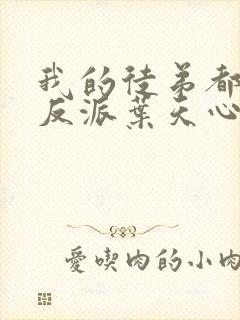 我的徒弟都
反派葉天心
愛喫肉的小肉